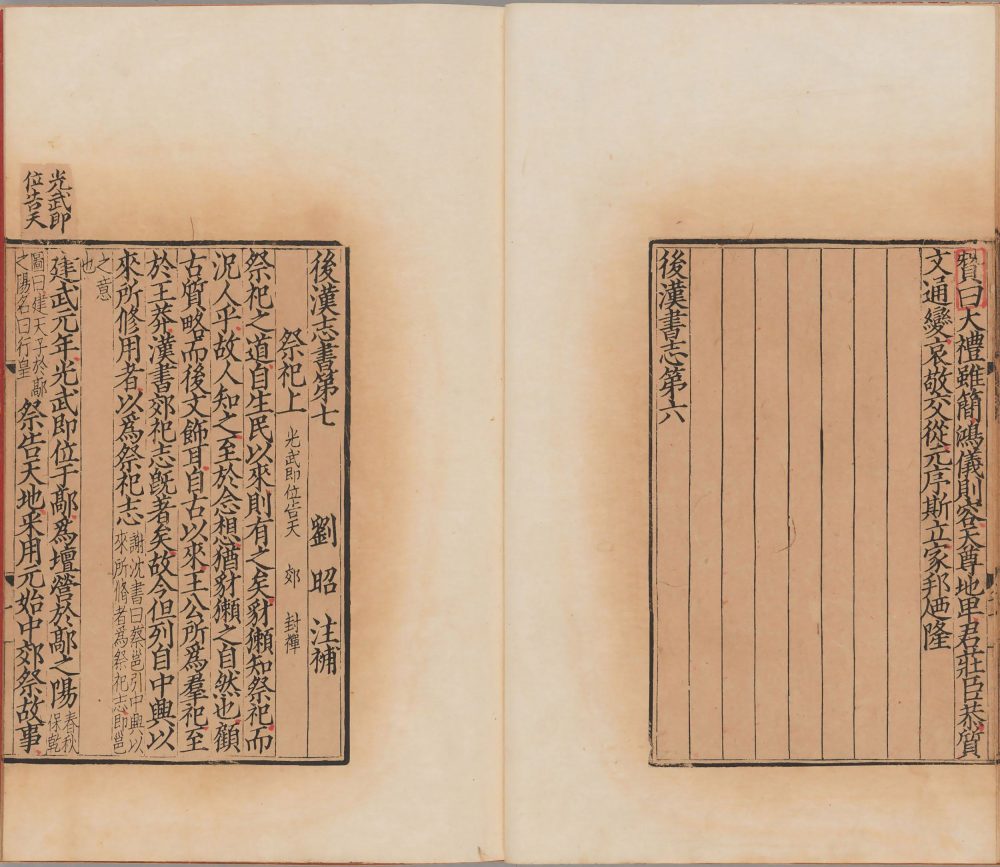 贊曰大禮雖簡鴻儀則容天尊地卑君莊臣恭質
文通變哀敬交從元序斯立家邦迺隆
後漢書志第六
後漢志書第七
劉昭 注補
祭祀上 光武即位告天 郊 封禪
祭祀之道自生民以來則有之矣豺獺知祭祀而
況人乎故人知之至於念想猶豺獺之自然也顧
古質略而後文飾耳自古以來王公所爲羣祀至
於王莽漢書郊祀志旣著矣故今但列自中興以
來所修用者以爲祭祀志
謝沈書曰蔡邕引中興以
來所修者爲祭祀志即邕
之意
也
建武元年光武即位于鄗爲壇營於鄗之陽
春秋
保乾
圖曰建天子於鄗
之陽名曰行皇
祭告天地采用元始中郊祭故事
光武即
位告天